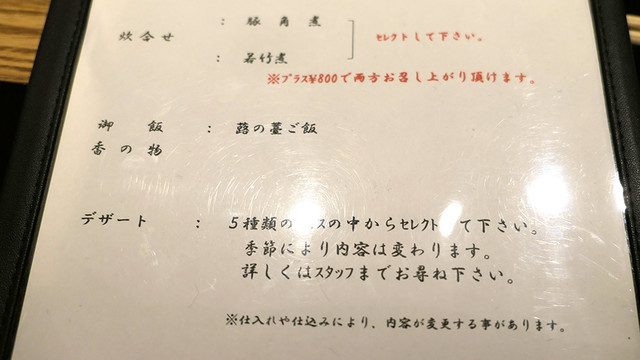 : 豚角煮
炊合せ セレクトして下さい。
: 若竹煮
※プラス¥800で両方お召し上がり頂けます。
御飯 : 蕗の薹ご飯
香の物
デザート : 5種類の スの中からセレクト て下さい。
季節により内容は変わります。
詳しくはスタッフまでお尋ね下さい。
※仕入れや仕込みにより、内容が変更する事があります。